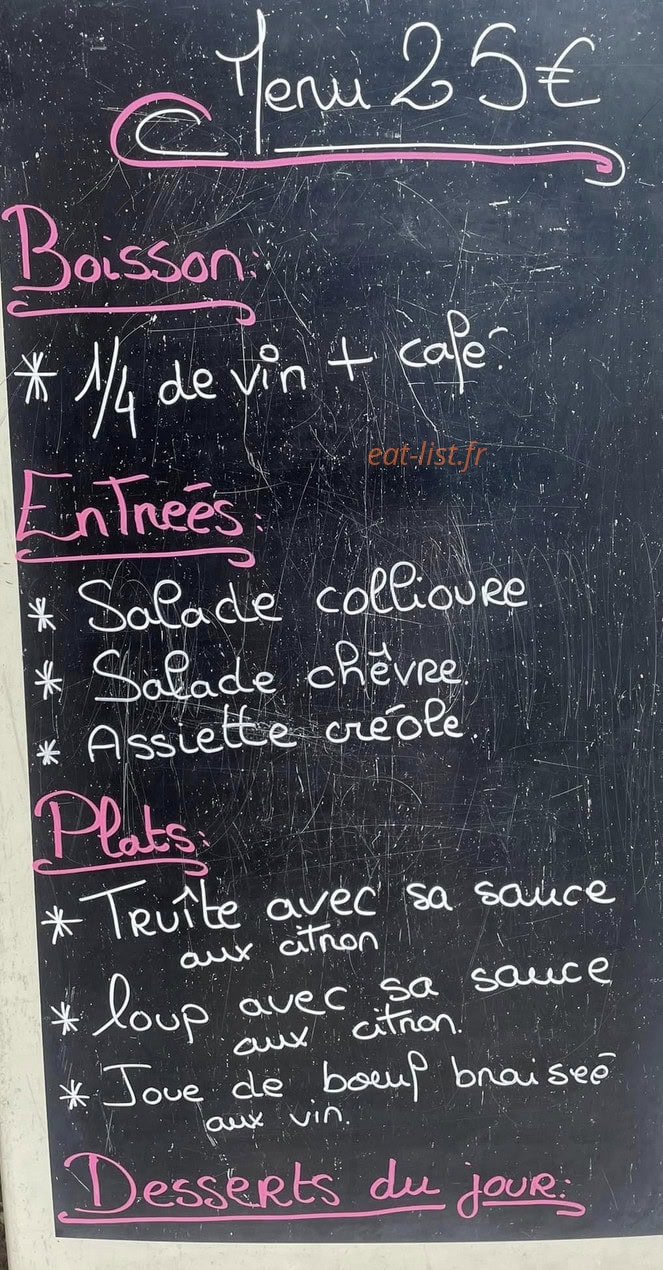 Menu 25€
Boisson:
* 1/4 de vin + café.
eat-list.fr
Entrées:
* Salade collioure.
* Salade chêvre.
* Assiette créole.
Plats:
* Truîte avec sa sauce
aux citron
* loup avec sa sauce
aux citron.
* Joue de bœuf braiseé
aux vin.
Desserts du jour: